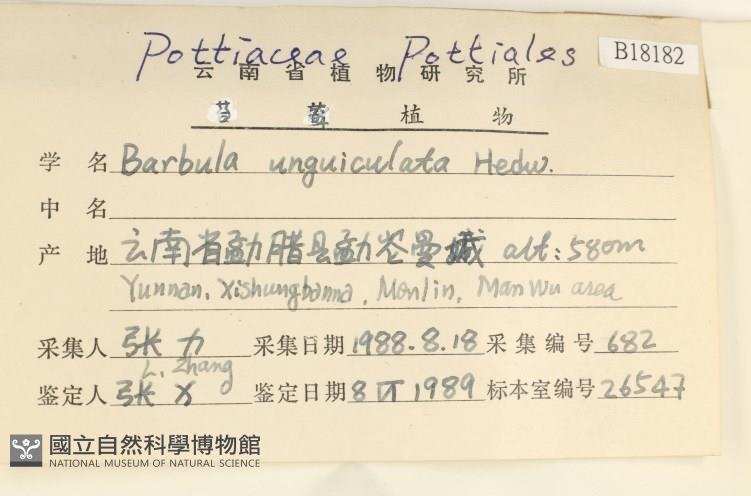 Pottiaceae Pottiales
B18182
云南省植物研究所
苔藓植物
学名 Barbula unguiculata Hedw.
中名
产地 云南省勐腊县勐仑曼 alt: 580m
Yunnan, Xishungbanna, Monlin, Man Wu area
采集人 张力 采集日期 1988.8.18 采集编号 682
L. Zhang
鉴定人 张力 鉴定日期 8 1989 标本室编号 26547
國立自然科學博物館
NATIONAL MUSEUM OF NATURAL SCIENCE